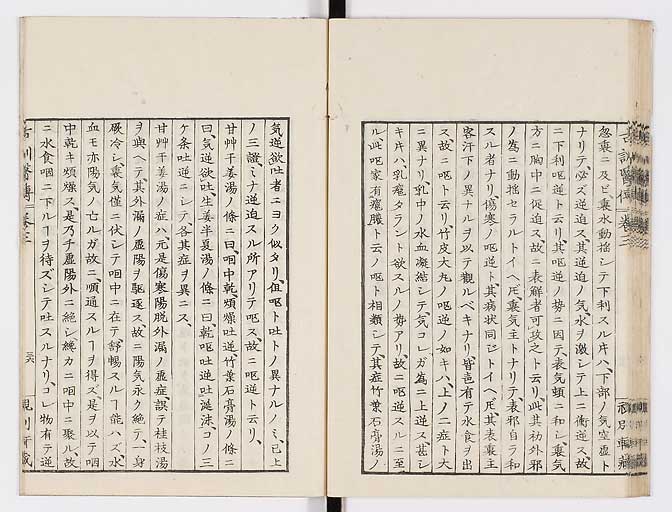 忽裏ニ及ビ裏水動揺シテ下利スル片ハ、下部ノ気空虚ト
ナリテ、必ズ逆迫ス、其逆迫ノ気、水ヲ激シテ上ニ衝逆ス、故
ニ下利呕逆ト云リ、其呕逆ノ勢ニ因テ、表気頓ニ和シ、裏気
方ニ胸中ニ促迫ス、故ニ表解者可攻之ト云リ、此其初外邪
ノ為ニ動揺セラルトイヘ𪜈、裏気主トナリテ、表邪自ラ和
スル者ナリ、傷寒ノ呕逆ト、其病状同ジトイヘ𪜈、其表裏主
客汗下ノ異ナルヲ以テ観ルベキナリ、皆邑有テ水食ヲ出
ス、故ニ呕ト云リ、竹皮大丸ノ呕逆ノ如キハ、上ノ二症ト大
ニ異ナリ、乳中ノ水血凝結シテ、気コレガ為ニ上逆ス、甚シ
キ片ハ、乳癰タラント欲スルノ勢アリ、故ニ呕逆スルニ至
ル、此呕家有癰膿ト云ノ呕ト相類シテ、其症竹葉石膏湯ノ
気逆欲吐者ニヨク似タリ、但呕ト吐トノ異ナルノミ、已上
ノ三證、ミナ逆迫スル所アリテ呕ス、故ニ呕逆ト云リ、
甘艸干姜湯ノ條ニ曰咽中乾煩燥吐逆竹葉石膏湯ノ條ニ
曰、気逆欲吐、生姜半夏湯ノ條ニ曰、乾呕吐逆吐涎沫、コノ三
ケ条吐逆ニシテ各其症ヲ異ニス、
甘艸干姜湯ノ症ハ、元是傷寒陽脱外漏ノ虚症、誤テ桂枝湯
ヲ與ヘテ、其外漏ノ虚陽ヲ駆逐ス、故ニ陽気永ク絶テ、一身
厥冷シ、裏気僅ニ伏シテ咽中ニ在テ、舒暢スルヿ能ハズ、水
血モ亦陽気ノ亡ルガ故ニ、順通スルヿヲ得ズ、是ヲ以テ咽
中乾キ煩燥ス、是乃チ虚陽外ニ絶シ、纔カニ咽中ニ聚ル、故
ニ水食咽ニ下ルヿヲ待ズシテ吐スルナリ、コレ物有テ逆